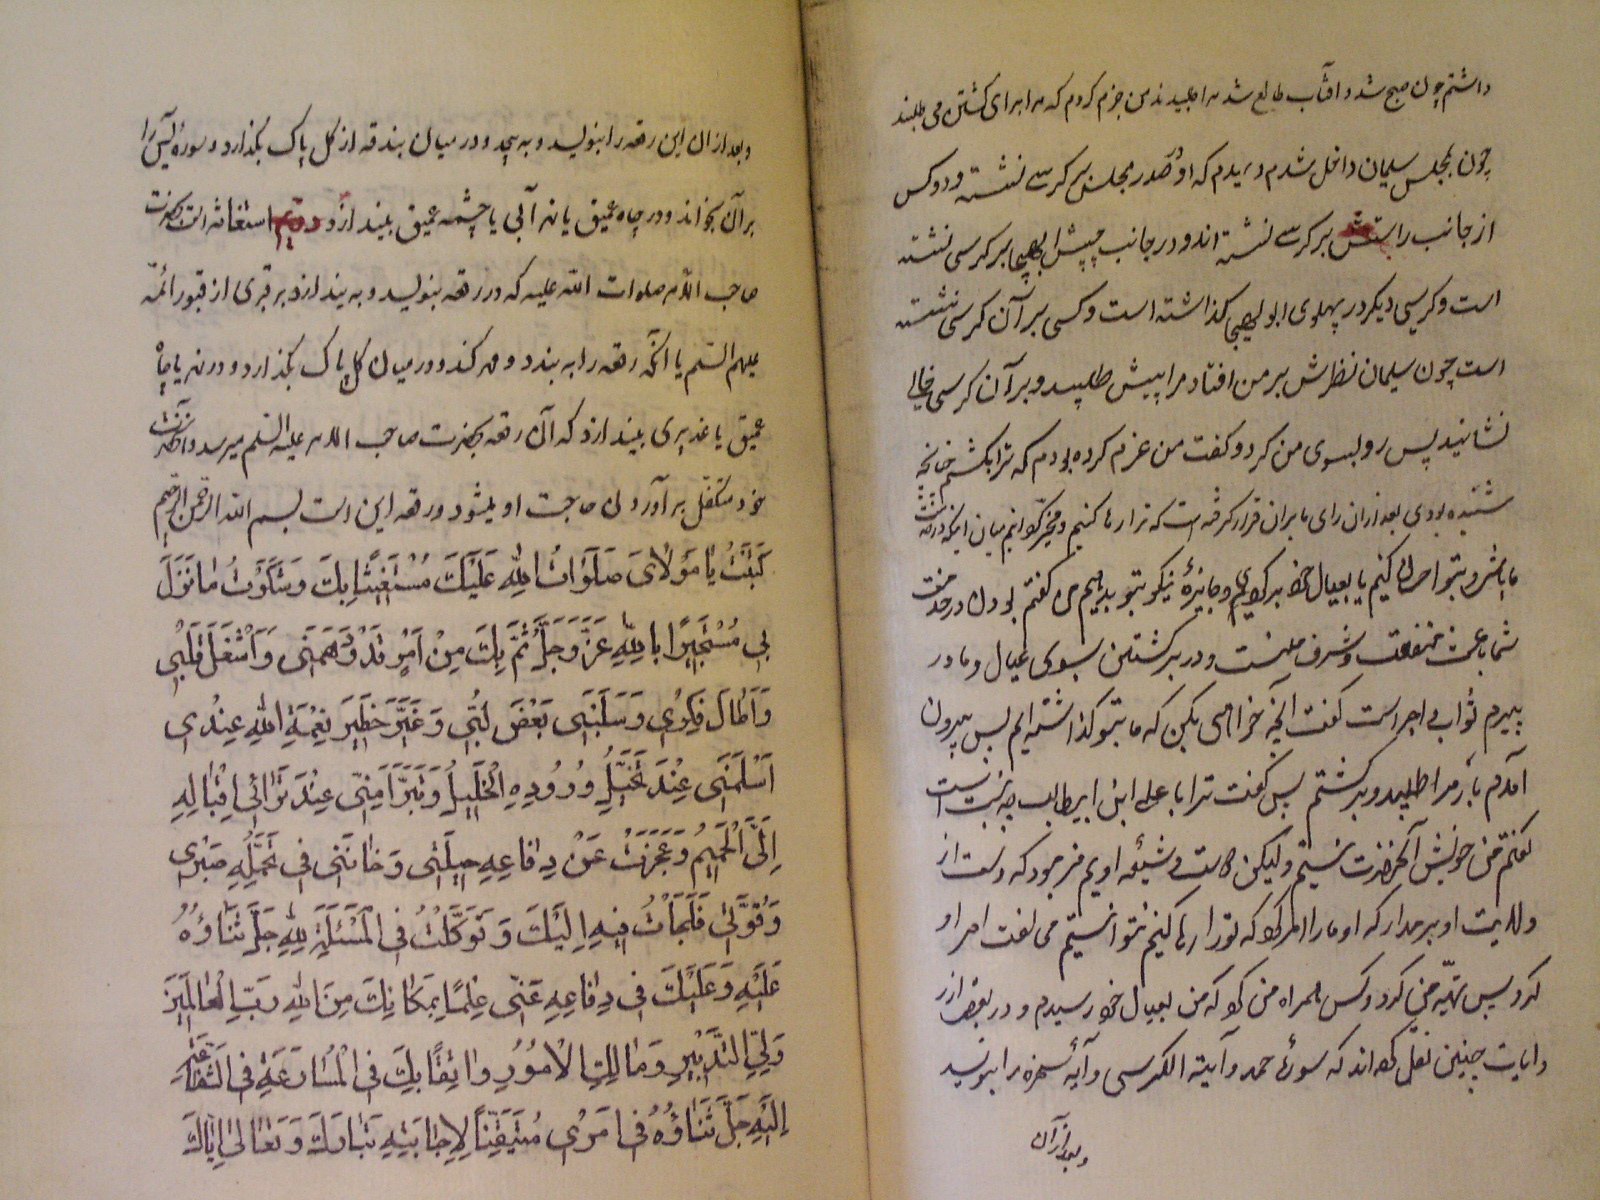 داشتم چون صبح شد و آفتاب طالع شد مرا طلبیدند من جزم کردم که مرا برای کشتن می طلبند
چون بمجلس سلیمان داخل شدم دیدم که او در صدر مجلس بر کرسے نشسته و دو کس
از جانب راستش بر کرسے نشسته اند و در جانب چپش ابو لهیجا بر کرسی نشسته
است و کرسی دیکر در پهلوی ابو لهیجا کذاشته است و کسی بر آن کرسی ننشسته
است چون سلیمان نظرش بر من افتاد مرا پیش طلبید و بر آن کرسی خالی
نشانید پس رو بسوی من کرد و کفت من عزم کرده بودم که ترا بکشم چنانچه
شنیده بودی بعد از ان رای ما بر ان قرار کرفته است که ترا رها کنیم و مخیر کردانیم میان اینکه در خدمت
ما باشی و بتو احسان کنیم یا بعیال خود بر کردی و جایزهٔ نیکو بتو بدهیم من کفتم بودن در خدمت
شما باعث منفعت و شرف منست و در برکشتن بسوی عیال و مادر
پیرم ثواب و اجر است کفت آنچه خواهی بکن که ما بتو کذاشته ایم پس بیرون
آمدم باز مرا طلبید و برکشتم پس کفت ترا با علی ابن ابیطالب چه نسبت است
کفتم من خویش آنحضرت نیستم ولیکن دوست و شیعه اویم فرمود که دست از
ولایت او بر مدار که او ما را امر کرد که تو را رها کنیم نتوانستیم مخالفت امر او
کرد پس تهیّه من کرد و کس همراه من کرد که من بعیال خود رسیدم و در بعض از
روایات چنین نقل کرده اند که سورهٔ حمد و آیة الکرسی و آیهٔ سخره را بنویسد
و بعد از آن
و بعد از ان این رقعه را بنویسد و به پیچد و در میان بندقه از کل پاک بکذارد و سورهٔ یٰسٓ را
بر آن بخواند و در چاه عمیق یا نهر آبی یا چشمه عمیق بیندازد دویّم استغاثه است بحضرت
صاحب الامر صلوات الله علیه که در رقعه بنویسد و به یندازد بر قبری از قبور ائمّه
علیهم السّلم یا انکه رقعه را به بندد و مهر کند و در میان کل پاک بکذارد و در نهر یا چاه
عمیق یا غدیری بیندازد که آن رقعه بحضرت صاحب الامر علیه السّلم میرسد و آنحضرت
خود متکفّل بر آوردن حاجت او میشود و رقعه این است بسم الله الرّحمن الرّحیم
کَتَبْتُ یٰا مَوْلٰایَ صَلَوٰاتُ اللهِ عَلَیْكَ مُسْتَغیثًا بِكَ وَ شَکَوْتُ مٰا نَزَلَ
بی مُسْتَجیرًا بِاللهِ عَزَّ وَجَلَّ ثُمَّ بِكَ مِنْ اَمْرٍ قَدْ دَهَمَنی وَ اَشْغَلَ قَلْبی
وَ اَطٰالَ فِکْری وَ سَلَبَنی بَعْضَ لُبّی وَ غَیَّرَ خَطیرَ نِعْمَةِ اللهِ عِنْدی
اَسْلَمَنی عِنْدَ تَخَیُّلِ وُرُودِهِ الْخَلیلُ وَ تَبَرَّاَ مِنّی عِنْدَ تَرٰائی اِقْبٰالِهِ
اِلَیَّ الْحَمیمُ وَ عَجَزَتْ عَنْ دِفٰاعِهِ حیلَتی وَ خٰانَنی فی تَحَمُّلِهِ صَبْری
وَ قُوَّتی فَلَجَأْتُ فیهِ اِلَیْكَ وَ تَوَکَّلْتُ فی الْمَسْئَلَةِ لِلهِ جَلَّ ثَنٰاؤُهُ
عَلَیْهِ وَ عَلَیْكَ فی دِفٰاعِهِ عَنّی عِلْمًا بِمَکٰانِكَ مِنَ اللهِ رَبِّ الْعٰالَمینَ
وَلِیِّ التَّدْبیرِ وَ مٰالِكِ الْاُمُورِ وٰاثِقًا بِكَ فی الْمُسٰارَعَةِ فی الشَّفٰاعَةِ
اِلَیْهِ جَلَّ ثَنٰاؤُهُ فی اَمْری مُتَیَقِّنًا لِاِجٰابَتِهِ تَبٰارَكَ وَ تَعٰالٰی اِیّٰاكَ